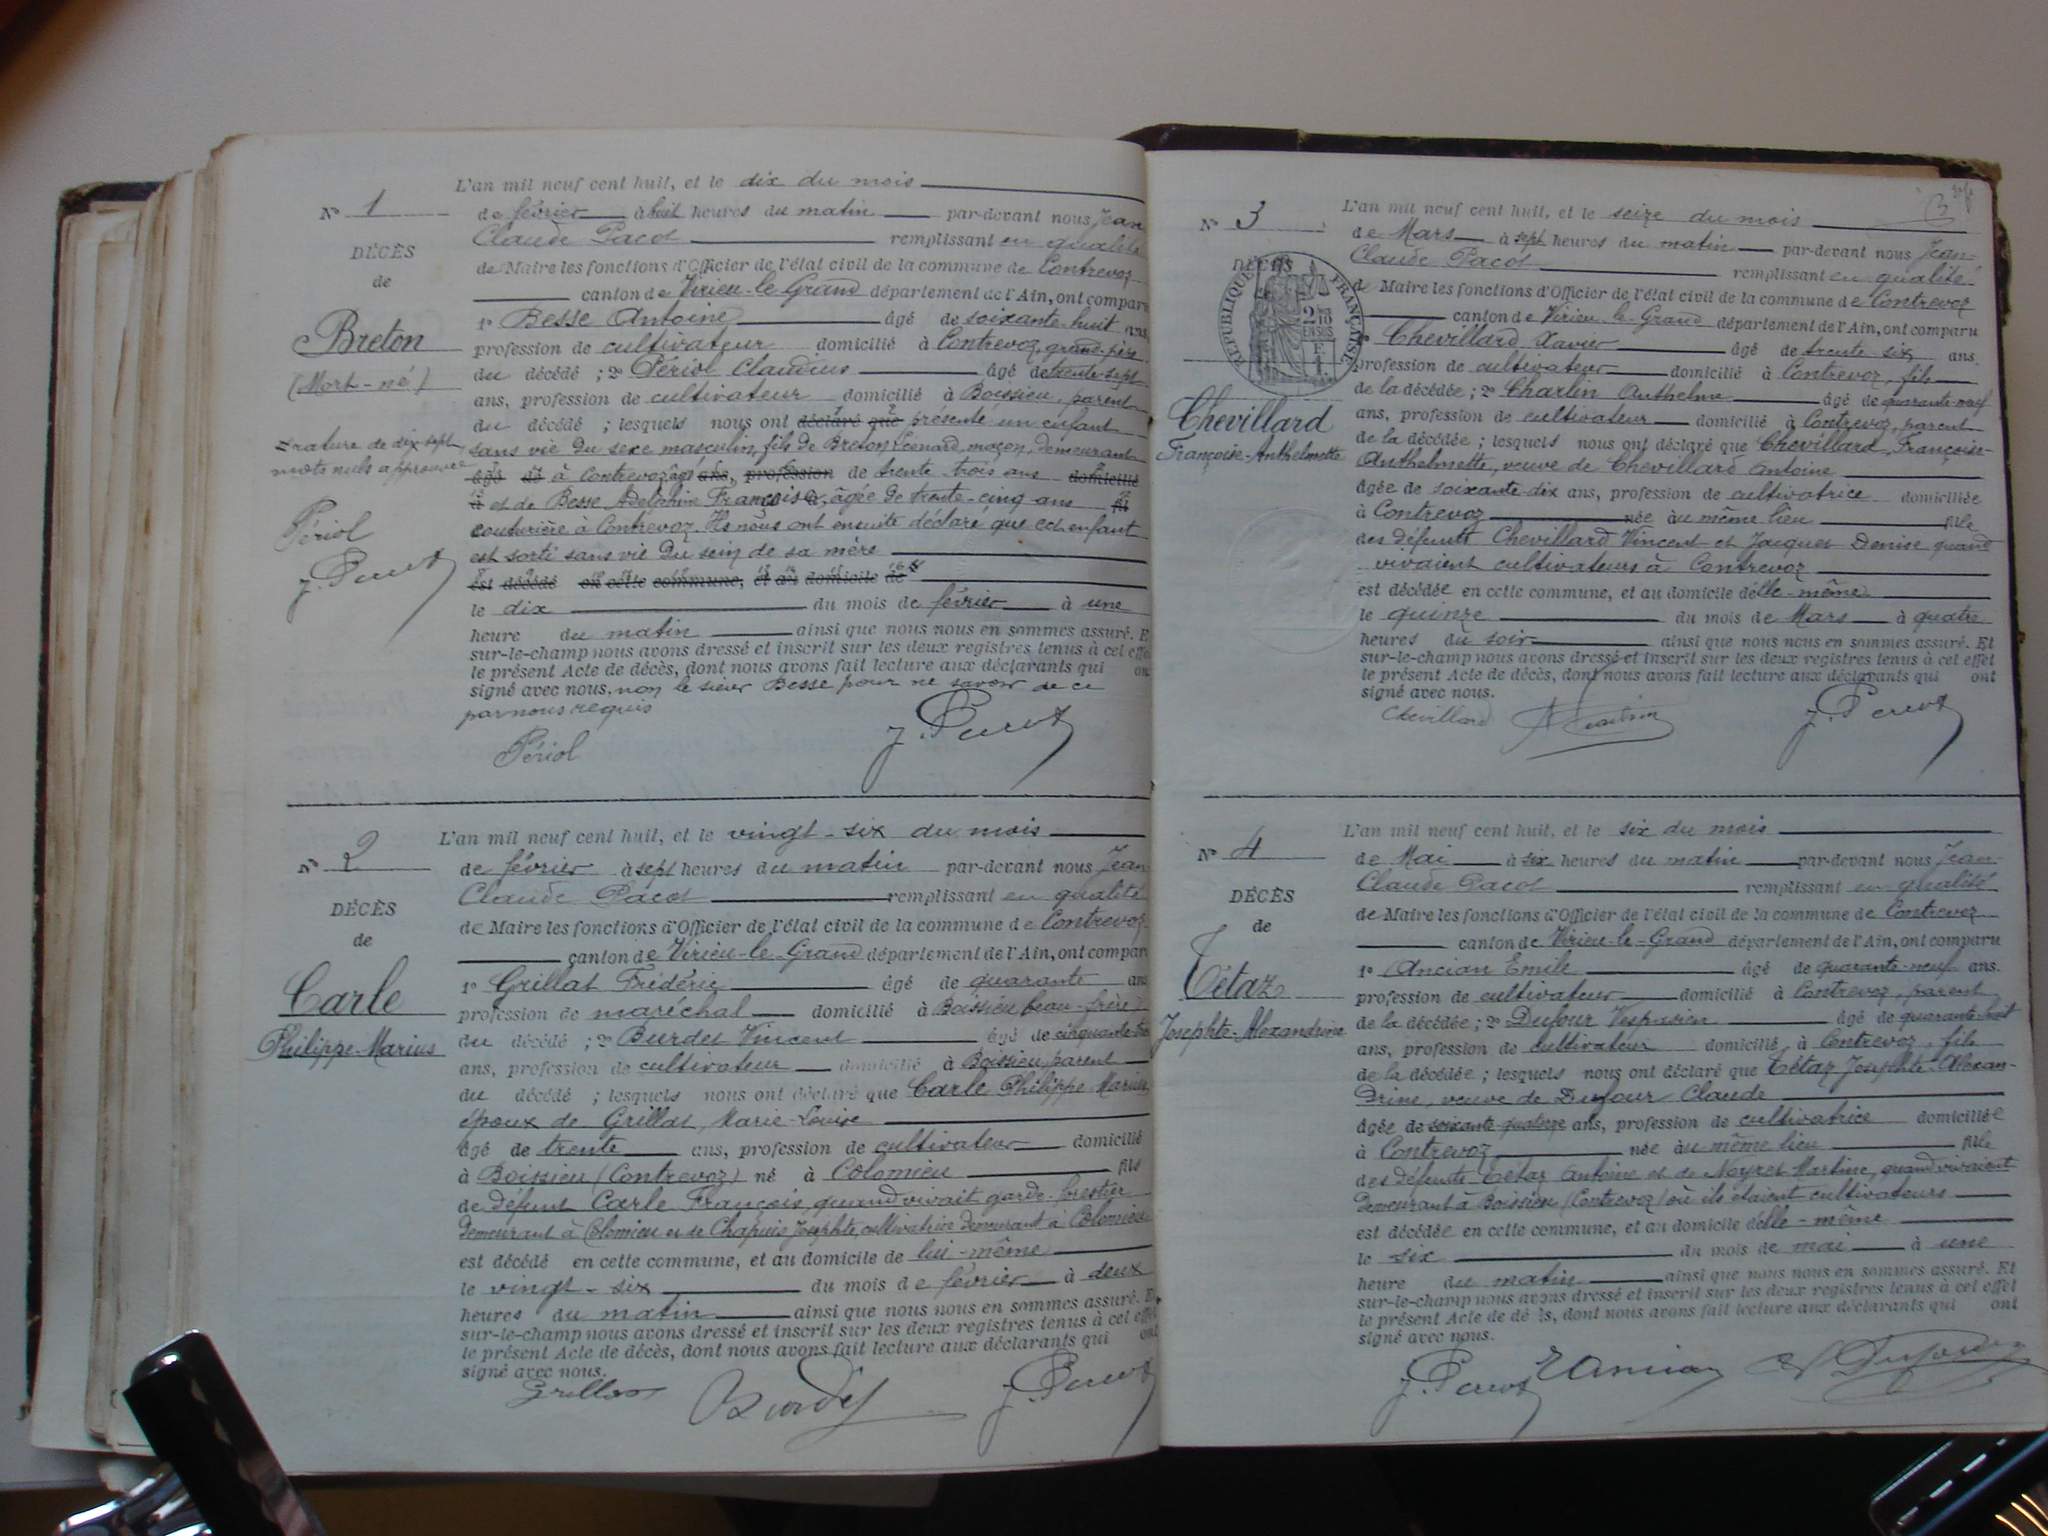 L'an mil neuf cent huit, et le dix du mois
N° 1
de février à huit heures du matin par-devant nous Jean
Claude Pacot remplissant en qualité
DÉCÈS
de Maire les fonctions d'Officier de l'état civil de la commune de Contrevoz
de
canton de Virieu-le-Grand département de l'Ain, ont comparu
1° Besse Antoine âgé de soixante-huit ans
Breton
profession de cultivateur domicilié à Contrevoz, grand-père
du décédé ; 2° Périol Claudius âgé de trente-sept
(Mort-né)
ans, profession de cultivateur domicilié à Boissieu, parent
du décédé ; lesquels nous ont déclaré que présenté un enfant
Rature de dix-sept
sans vie du sexe masculin, fils de Breton Léonard, maçon, demeurant
mots nuls approuvée
âgé de à Contrevoz âgé ans, profession de trente trois ans domicilié
à et de Besse Adelphine Françoise, âgée de trente-cinq ans
Périol
couturière à Contrevoz. Ils nous ont ensuite déclaré que cet enfant
est sorti sans vie du sein de sa mère
J. Pacot
est décédé en cette commune, et au domicile de
le dix du mois de février à une
heure du matin ainsi que nous nous en sommes assuré. E
sur-le-champ nous avons dressé et inscrit sur les deux registres tenus à cet effe
le présent Acte de décès, dont nous avons fait lecture aux déclarants qui on
signé avec nous, non le sieur Besse pour ne savoir de ce
par nous requis
Périol J. Pacot
L'an mil neuf cent huit, et le vingt-six du mois
N° 2
de février à sept heures du matin par-devant nous Jean
Claude Pacot remplissant en qualité
DÉCÈS
de Maire les fonctions d'Officier de l'état civil de la commune de Contrevoz
de
canton de Virieu-le-Grand département de l'Ain, ont comparu
1° Grillat Frédéric âgé de quarante ans
Carle
profession de maréchal domicilié à Boissieu beau-frère
Philippe-Marius
du décédé ; 2° Burdet Vincent âgé de cinquante-
ans, profession de cultivateur domicilié à Boissieu, parent
du décédé ; lesquels nous ont déclaré que Carle Philippe Marius
époux de Grillat Marie-Louise
âgé de trente ans, profession de cultivateur domicilié
à Boissieu (Contrevoz) né à Colomieu fils
de défunt Carle François, quand vivait garde-forestier
demeurant à Colomieu et de Chapuis Josephte, cultivatrice demeurant à Colomieu
est décédé en cette commune, et au domicile de lui-même
le vingt-six du mois de février à deux
heures du matin ainsi que nous nous en sommes assuré. E
sur-le-champ nous avons dressé et inscrit sur les deux registres tenus à cet effe
le présent Acte de décès, dont nous avons fait lecture aux déclarants qui ont
signé avec nous.
Grillat Burdet J. Pacot
3
L'an mil neuf cent huit, et le seize du mois
N° 3
de Mars à sept heures du matin par-devant nous Jean-
Claude Pacot remplissant en qualité
DÉCÈS
RÉPUBLIQUE FRANÇAISE
de Maire les fonctions d'Officier de l'état civil de la commune de Contrevoz
canton de Virieu-le-Grand département de l'Ain, ont comparu
1° Chevillard Xavier âgé de trente-six ans
profession de cultivateur domicilié à Contrevoz, fils
de la décédée ; 2° Charlin Anthelme âgé de quarante-neuf
Chevillard
ans, profession de cultivateur domicilié à Contrevoz, parent
Françoise-Anthelmette
de la décédée ; lesquels nous ont déclaré que Chevillard, Françoise-
Anthelmette, veuve de Chevillard Antoine
âgée de soixante-dix ans, profession de cultivatrice domiciliée
à Contrevoz née au même lieu fille
des défunts Chevillard Vincent et Jacquet Denise quand
vivaient cultivateurs à Contrevoz
est décédée en cette commune, et au domicile d'elle-même
le quinze du mois de Mars à quatre
heures du soir ainsi que nous nous en sommes assuré. Et
sur-le-champ nous avons dressé et inscrit sur les deux registres tenus à cet effet
le présent Acte de décès, dont nous avons fait lecture aux déclarants qui ont
signé avec nous.
Chevillard A Charlin J. Pacot
L'an mil neuf cent huit, et le six du mois
N° 4
de Mai à six heures du matin par-devant nous Jean-
Claude Pacot remplissant en qualité
DÉCÈS
de Maire les fonctions d'Officier de l'état civil de la commune de Contrevoz
de
canton de Virieu-le-Grand département de l'Ain, ont comparu
1° Ancian Emile âgé de quarante-neuf ans.
Tétaz
profession de cultivateur domicilié à Contrevoz, parent
Josephte-Alexandrine
de la décédée ; 2° Dufour Vespasien âgé de quarante-huit
ans, profession de cultivateur domicilié à Contrevoz, fils
de la décédée ; lesquels nous ont déclaré que Tétaz Josephte-Alexan-
drine, veuve de Dufour Claude
âgée de soixante-quatorze ans, profession de cultivatrice domiciliée
à Contrevoz née au même lieu fille
des défunts Tétaz Antoine et de Neyret Martine, quand vivaient
demeurant à Boissieu (Contrevoz) où ils étaient cultivateurs
est décédée en cette commune, et au domicile d'elle-même
le six du mois de mai à une
heure du matin ainsi que nous nous en sommes assuré. Et
sur-le-champ nous avons dressé et inscrit sur les deux registres tenus à cet effet
le présent Acte de décès, dont nous avons fait lecture aux déclarants qui ont
signé avec nous.
J. Pacot E Ancian V Dufour